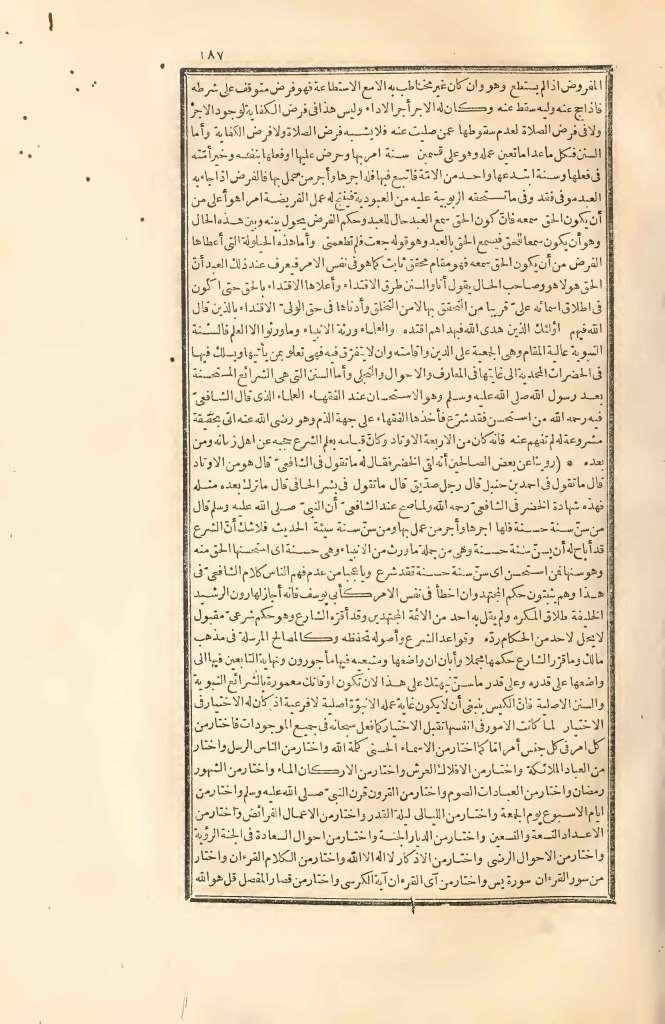 ١٨٧
المفروض اذا لم يستطع وهو وان كان غير مخاطب به الا مع الاستطاعة فهو فرض متوقف على شرطه
فاذا حج عنه وليه سقط عنه وكان له الاجر أجر الاداء وليس هذا فى فرض الكفاية لوجود الاجر
ولا فى فرض الصلاة لعدم سقوطها عمن صليت عنه فلا يشبه فرض الصلاة ولا فرض الكفاية وأما
السنن فكل ما عدا ما تعين عمله وهو على قسمين سنة امر بها وحرض عليها او فعلها بنفسه وخير أمته
فى فعلها وسنة ابتدعها واحد من الامة فاتبع فيها فله اجرها وأجر من عمل بها فالفرض اذا جاء به
العبد موفى فقد وفى ما تستحقه الربوبية عليه من العبودية فينتج له عمل الفريضة امرا هو أعلى من
أن يكون الحق سمعه فانّ كون الحق سمع العبد حال للعبد وحكم الفرض يحول بينه وبين هذه الحال
وهو أن يكون سمعا للحق فيسمع الحق بالعبد وهو قوله جعت فلم تطعمنى وأما هذه الحيلولة التى أعطاها
الفرض من أن يكون الحق سمعه فهو مقام محقق ثابت كما هو فى نفس الامر فيعرف عند ذلك العبد أنّ
الحق هو لا هو وصاحب الحال يقول أنا والسنن طرق الاقتداء وأعلاها الاقتداء بالحق حتى اكون
فى اطلاق اسمائه علىّ قريبا من التحقق بها لا من التخلق وأدناها فى حق الولىّ الاقتداء بالذين قال
الله فيهم اولئك الذين هدى الله فبهداهم اقتده والعلماء ورثة الانبياء وما ورثوا الا العلم فالسنة
النبوية عالية المقام وهى الجمعية على الدين واقامته وان لا يتفرّق فيه فهى تعلو بمن يأتيها ويسلك فيها
فى الحضرات المحمدية الى غايتها فى المعارف والاحوال والتجلى وأما السنن التى هى الشرائع المستحسنة
بعد رسول الله صلى الله عليه وسلم وهو الاستحسان عند الفقهاء العلماء الذى قال الشافعىّ
فيه رحمه الله من استحسن فقد شرّع فأخذها الفقهاء على جهة الذم وهو رضى الله عنه اتى بحقيقة
مشروعة له لم تفهم عنه فانه كان من الاربعة الاوتاد وكان قيامه بعلم الشرع حجبه عن اهل زمانه ومن
بعده * (روينا عن بعض الصالحين أنه لقى الخضر فقال له ما تقول فى الشافعىّ قال هو من الاوتاد
قال ما تقول فى احمد بن حنبل قال رجل صدّيق قال ما تقول فى بشر الحافى قال ما ترك بعده مثله
فهذه شهادة الخضر فى الشافعىّ رحمه الله ولما صح عند الشافعىّ أن النبىّ صلى الله عليه وسلم قال
من سنّ سنة حسنة فلها اجرها وأجر من عمل بها ومن سنّ سنة سيئة الحديث فلا شك أنّ الشرع
قد أباح له أن يسنّ سنة حسنة وهى من جملة ما ورث من الانبياء وهى حسنة اى استحسنها الحق منه
وهو سنها فمن استحسن اى سنّ سنة حسنة فقد شرع ويا عجبا من عدم فهم الناس كلام الشافعىّ فى
هذا وهم يثبتون حكم المجتهد وان اخطأ فى نفس الامر كأبى يوسف فانه أجاز لهارون الرشيد
الخليفة طلاق المكره ولم يقل به احد من الائمة المجتهدين وقد أقرّه الشارع وهو حكم شرعىّ مقبول
لا يحل لاحد من الحكام ردّه وقواعد الشرع وأصوله تحفظه وكالمصالح المرسلة فى مذهب
مالك وما قرّر الشارع حكمها مجملا وأبان ان واضعها ومتبعيه فيها مأجورون ونهاية التابعين فيها الى
واضعها على قدره وعلى قدر ما سنّ نبهتك على هذا لان تكون اوقاتك معمورة بالشرائع النبوية
والسنن الاصلية فانّ الكيس ينبغى أن لا يكون غاية عمله الا نبوّة اصلية لا فرعية اذ كان له الاختيار فى
الاختيار لما كانت الامور فى انفسها تقبل الاختيار كما فعل سبحانه فى جميع الموجودات فاختار من
كل امر فى كل جنس أمرا مّا كما اختار من الاسماء الحسنى كلمة الله واختار من الناس الرسل واختار
من العباد الملائكة واختار من الافلاك العرش واختار من الاركان الماء واختار من الشهور
رمضان واختار من العبادات الصوم واختار من القرون قرن النبىّ صلى الله عليه وسلم واختار من
ايام الاسبوع يوم الجمعة واختار من الليالى ليلة القدر واختار من الاعمال الفرائض واختار من
الاعداد التسعة والتسعين واختار من الديار الجنة واختار من احوال السعادة فى الجنة الرؤية
واختار من الاحوال الرضى واختار من الاذكار لا اله الا الله واختار من الكلام القرءان واختار
من سور القرءان سورة يس واختار من آى القرءان آية الكرسى واختار من قصار المفصل قل هو الله